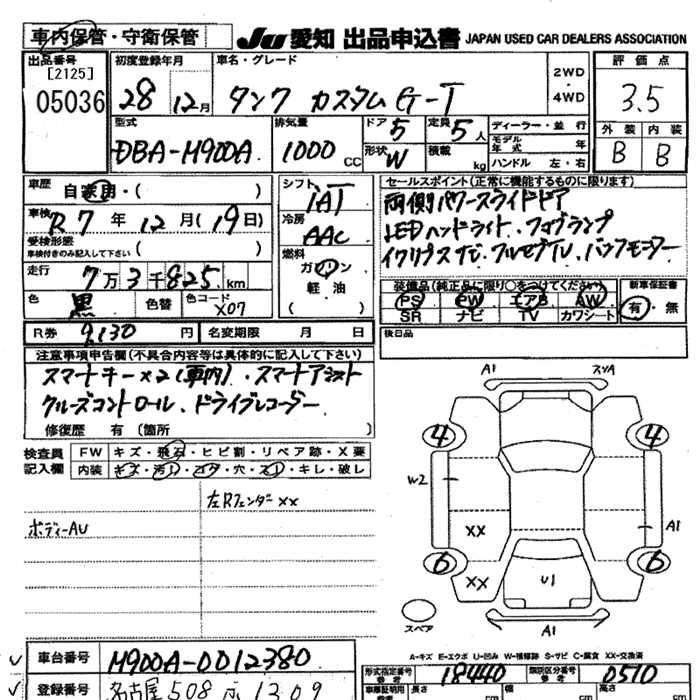 車内保管・守衛保管 JU 愛知 出品申込書 JAPAN USED CAR DEALERS ASSOCIATION
出品番号 [2125] 05036
初度登録年月 28 12月
車名・グレード タンク カスタム G-T
2WD・4WD
評価点 3.5
外装 内装
B B
型式 DBA-M900A
排気量 1000 CC
ドア 5 定員 5人
形状 W 積載 kg
ディーラー・並行
モデル年式 年
ハンドル 左・右
車歴 自家用・( )
シフト IAT
セールスポイント(正常に機能するものに限ります)
両側パワースライドドア
LEDヘッドライト、フォグランプ
イクリプスナビ、フルセグTV、バックモニター
車検 R7年 12月(19日)
冷房 AAC
受検形態 車検付きのみ記入して下さい ( )
走行 7万3千825km
燃料 ガソリン 軽油 ( )
色 黒 色替 色コード X07
装備品(純正品に限り○をつけてください)
PS PW エアB AW
SR ナビ TV カワシート
新車保証書 有・無
R券 9,130円 名変期限 月 日
後日品
注意事項申告欄(不具合内容等は具体的に記入して下さい)
スマートキー×2(車内)、スマートアシスト
クルーズコントロール、ドライブレコーダー
修復歴 有(箇所 )
検査員記入欄 FW キズ・飛石・ヒビ割・リペア跡・X要
内装 キズ・汚れ・コゲ・穴・スレ・キレ・破レ
左Rフェンダー××
ボディーAU
A1 スリA
4 4
W2
XX A1
6 6
XX U1
スペア A1
A-キズ E-エクボ U-凹み W-補修跡 S-サビ C-腐食 XX-交換済
車台番号 M900A-0012380
形式指定番号 参考 18440 類別区分番号 参考 0510
登録番号 名古屋 508 1309
車庫証明用 参考 長さ cm 幅 cm 高さ cm